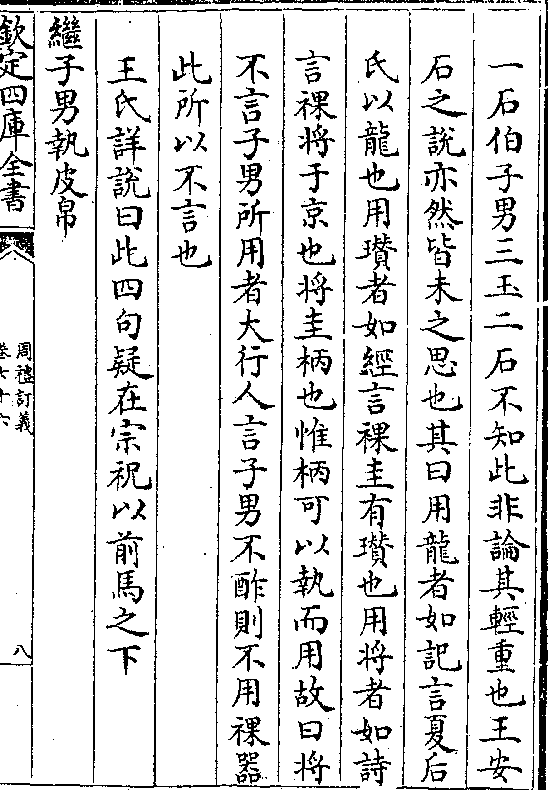 一石伯子男三玉二石不知此非論其輕重也王安
石之說亦然皆未之思也其曰用龍者如記言夏后
氏以龍也用瓚者如經言祼圭有瓚也用將者如詩
言祼將于京也將圭柄也惟柄可以執而用故曰將
不言子男所用者大行人言子男不酢則不用祼器
此所以不言也
王氏詳說曰此四句疑在宗祝以前馬之下
繼子男執皮帛
欽定四庫全書
周禮訂義
卷七十六
八